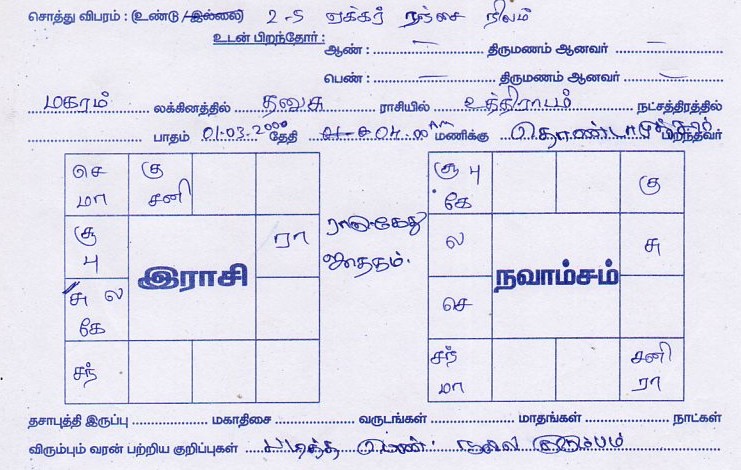 சொத்து விபரம் : (உண்டு / இல்லை) 2-5 ஏக்கர் நஞ்சை நிலம்
உடன் பிறந்தோர் :
ஆண் : — திருமணம் ஆனவர் —
பெண் : — திருமணம் ஆனவர் —
மகரம் லக்கினத்தில் தனுசு ராசியில் உத்திராடம் நட்சத்திரத்தில்
பாதம் 01-03-2000 தேதி 04.00 AM மணிக்கு பிறந்தவர்
செ மா
கு சனி
சூ பு
ரா
சு ல கே
சந்
இராசி
ராகு-கேது ஜாதகம்.
சூ பு கே
கு
ல
சு
செ
சந் மா
சனி ரா
நவாம்சம்
தசாபுத்தி இருப்பு மகாதிசை வருடங்கள் மாதங்கள் நாட்கள்
விரும்பும் வரன் பற்றிய குறிப்புகள் படித்த பெண். நல்ல குடும்பம்